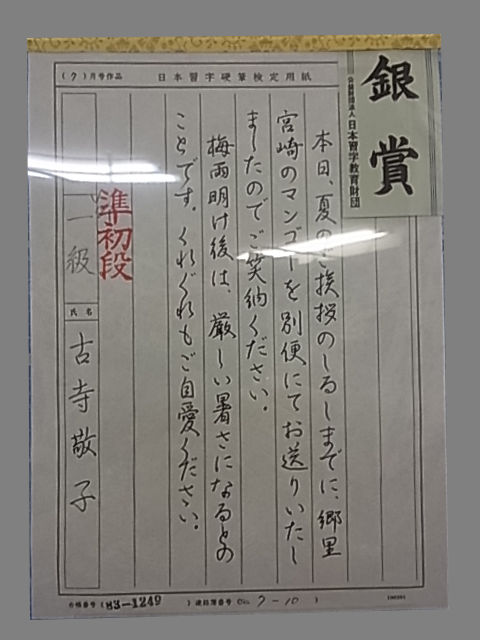 (7)月号作品
日本習字硬筆検定用紙
銀賞
公益財団法人 日本習字教育財団
本日、夏のご挨拶のしるしまでに、郷里
宮崎のマンゴーを別便にてお送りいたし
ましたのでご笑納ください。
梅雨明け後は、厳しい暑さになるとの
ことです。くれぐれもご自愛ください。
準初段
一級
氏名
古寺敬子
合格番号(83-1249
)連絡簿番号(No. 7-10 )